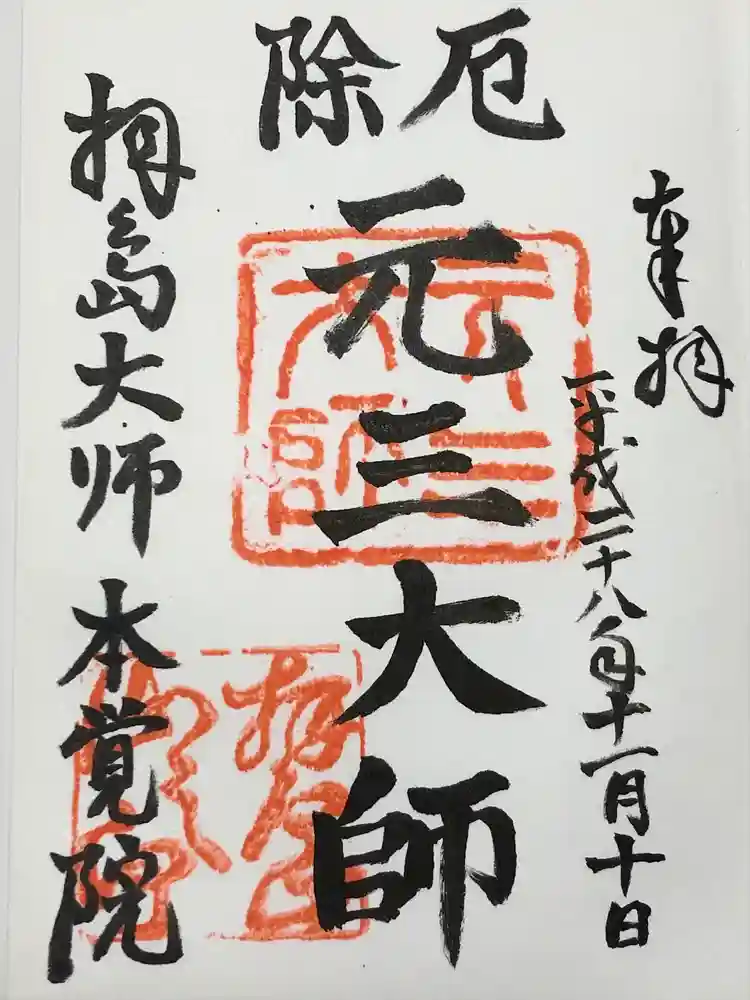 奉拝
平成二十八年十一月十日
厄除
元三大師
元三大師
拝島大師
本覚院